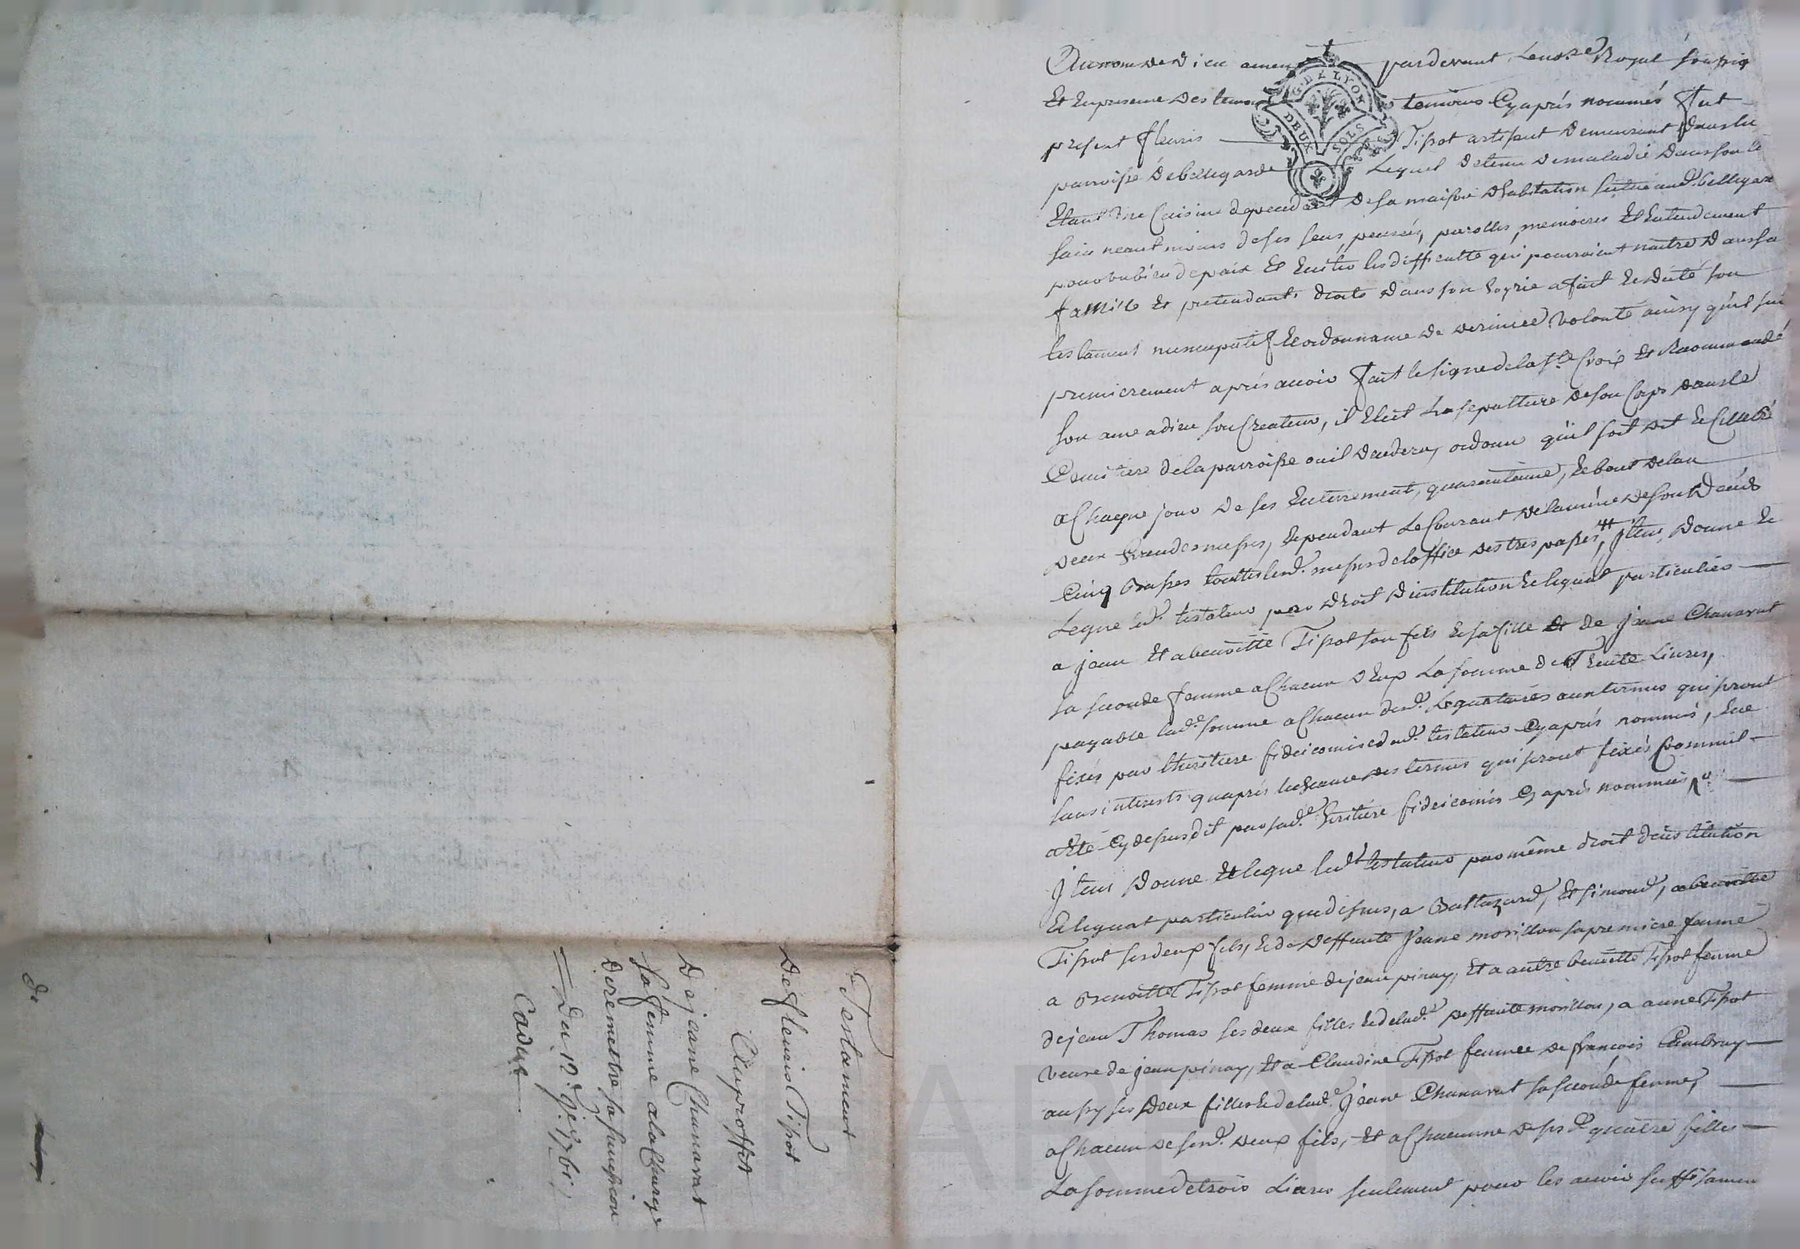 Au nom de Dieu amen pardevant Le no.re Royal soussig.
Et En presence des temoins Cy aprés nommés fut
G. DE LYON
DEUX SOLS
present fleuris Tipot artisant demeurant dans la
parroisse de bellegarde Lequel detenu de maladie dans son lit
Etant dne Cuisine dependant de sa maison d'habitation scituée aud. bellegarde
sain neantmoins de ses sens, pensées, parolles, memoires Et Entendement
pour bubien de paix Et Eviter les difficulté qui pourroient naitre dans sa
famille Et pretendants droits dans son hoyrie a fait Et dicté son
testament nuncupatif Et ordonnance de derniere volonté ainsy quil suit
premierement aprés avoir fait le signe de la s.te Croix Et Recommandé
son ame a dieu son Createur, il Elit La sepulture de son Corps dans le
Cemitiere de la parroisse ou il decedera, ordonne qu'il soit dit Et Cellebré
a Chaque jour de ses Enterrement, quarantaine, Et bout de lan
deux grandes messes, Et pendant Le Courant de lannée de son Decéds
Cinq basses touttes lesd. messes de loffice des trespassés, Jtem, donne Et
Legue led. testateur par droit d'institution Et legat particulier
a jean Et a benoitte Tipot son fils Et sa fille Et de jeane Chanavat
sa seconde femme a Chacun d'Eux La somme de Trente Livres,
payable lad.e somme a Chacun desd. Legataires aux termes qui seront
fixés par l'heritiere fideicomise dud. testateur Cy aprés nommée, Et ce
sans interests qu'aprés lecheance des termes qui seront fixés Comme il
a Eté Cy dessus dit par sad.e heritiere fideicomise Cy aprés nommée
Jtem donne Et legue led.t testateur par même droit d'institution
Et legat particulier que dessus, a Baltazard, Et simond, a benoitte
Tipot ses deux fils, Et de deffunte Jeane morillon sa premiere femme
a Benoitte Tipot femme de jean pinay, Et a autre benoitte Tipot femme
de jean Thomas ses deux filles Et de lad.e deffunte morillon, a anne Tipot
veuve de jean pinay, Et a Claudine Tipot femme de francois
aussy ses Deux filles Et de lad.e Jeane Chanavat sa seconde femme,
a Chacun de sesd. deux fils, Et a Chacunne de ses d. quatre filles
La somme de trois Livres seulement pour les avoir suffisamen
Testament
De fleuris Tipot
Au proffit
De jeane Chanavat
sa femme a la Charge
De remettre sa succession
Du 12.e